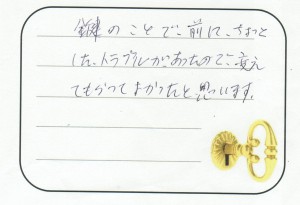 鍵のことで前に、ちょっと
した、トラブルがあったので、変え
てもらってよかったと思っています。